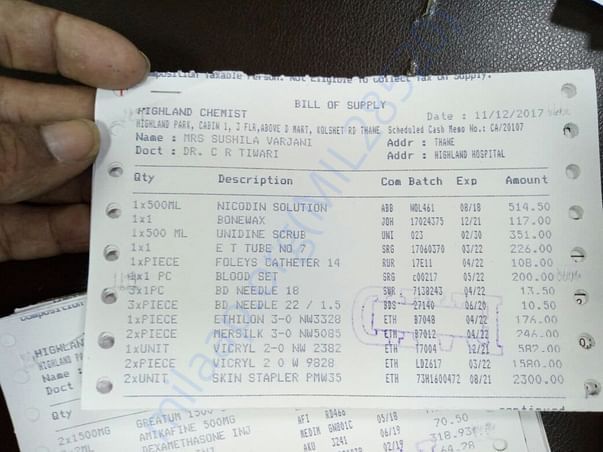 Composition Taxable Person. Not Eligible to Collect Tax on Supply.
BILL OF SUPPLY
HIGHLAND CHEMIST
Date : 11/12/2017
HIGHLAND PARK, CABIN 1, J FLR,ABOVE D MART, KOLSHET RD THANE Scheduled Cash Memo No.: CA/20107
Name : MRS SUSHILA VARJANI Addr : THANE
Doct : DR. C R TIWARI Addr : HIGHLAND HOSPITAL
Qty Description Com Batch Exp Amount
1x500ML NICODIN SOLUTION ABB WOL461 08/18 514.50
1x1 BONEWAX JOH 17024375 12/21 117.00
1x500 ML UNIDINE SCRUB UNI 023 02/30 351.00
1x1 E T TUBE NO 7 SRG 17060370 03/22 226.00
1xPIECE FOLEYS CATHETER 14 RUR 17E11 04/22 108.00
1x1 PC BLOOD SET SRG c00217 05/22 200.00
3x1PC BD NEEDLE 18 SWR 7138243 04/22 13.50
3xPIECE BD NEEDLE 22 / 1.5 BDS 27140 06/20 10.50
1xPIECE ETHILON 3-0 NW3328 ETH B7048 04/22 176.00
2xPIECE MERSILK 3-0 NW5085 ETH B7012 04/22 246.00
1xUNIT VICRYL 2-0 NW 2382 ETH T7004 12/21 582.00
2xPIECE VICRYL 2 0 W 9828 ETH LDZ617 03/22 1580.00
2xUNIT SKIN STAPLER PMW35 ETH 73H1600472 08/21 2300.00
continued
HIGHLAND
HIGHLAND PARK
Name :
Doct
Qty
2x1500MG GREATUM 1500 AFI RD466 05/18 70.50
AMIKAFINE 500MG MEDIM GN801C 06/19 318.93
DEXAMETHASONE INJ AKU J241 02/19
milaap.org(MIL285720)